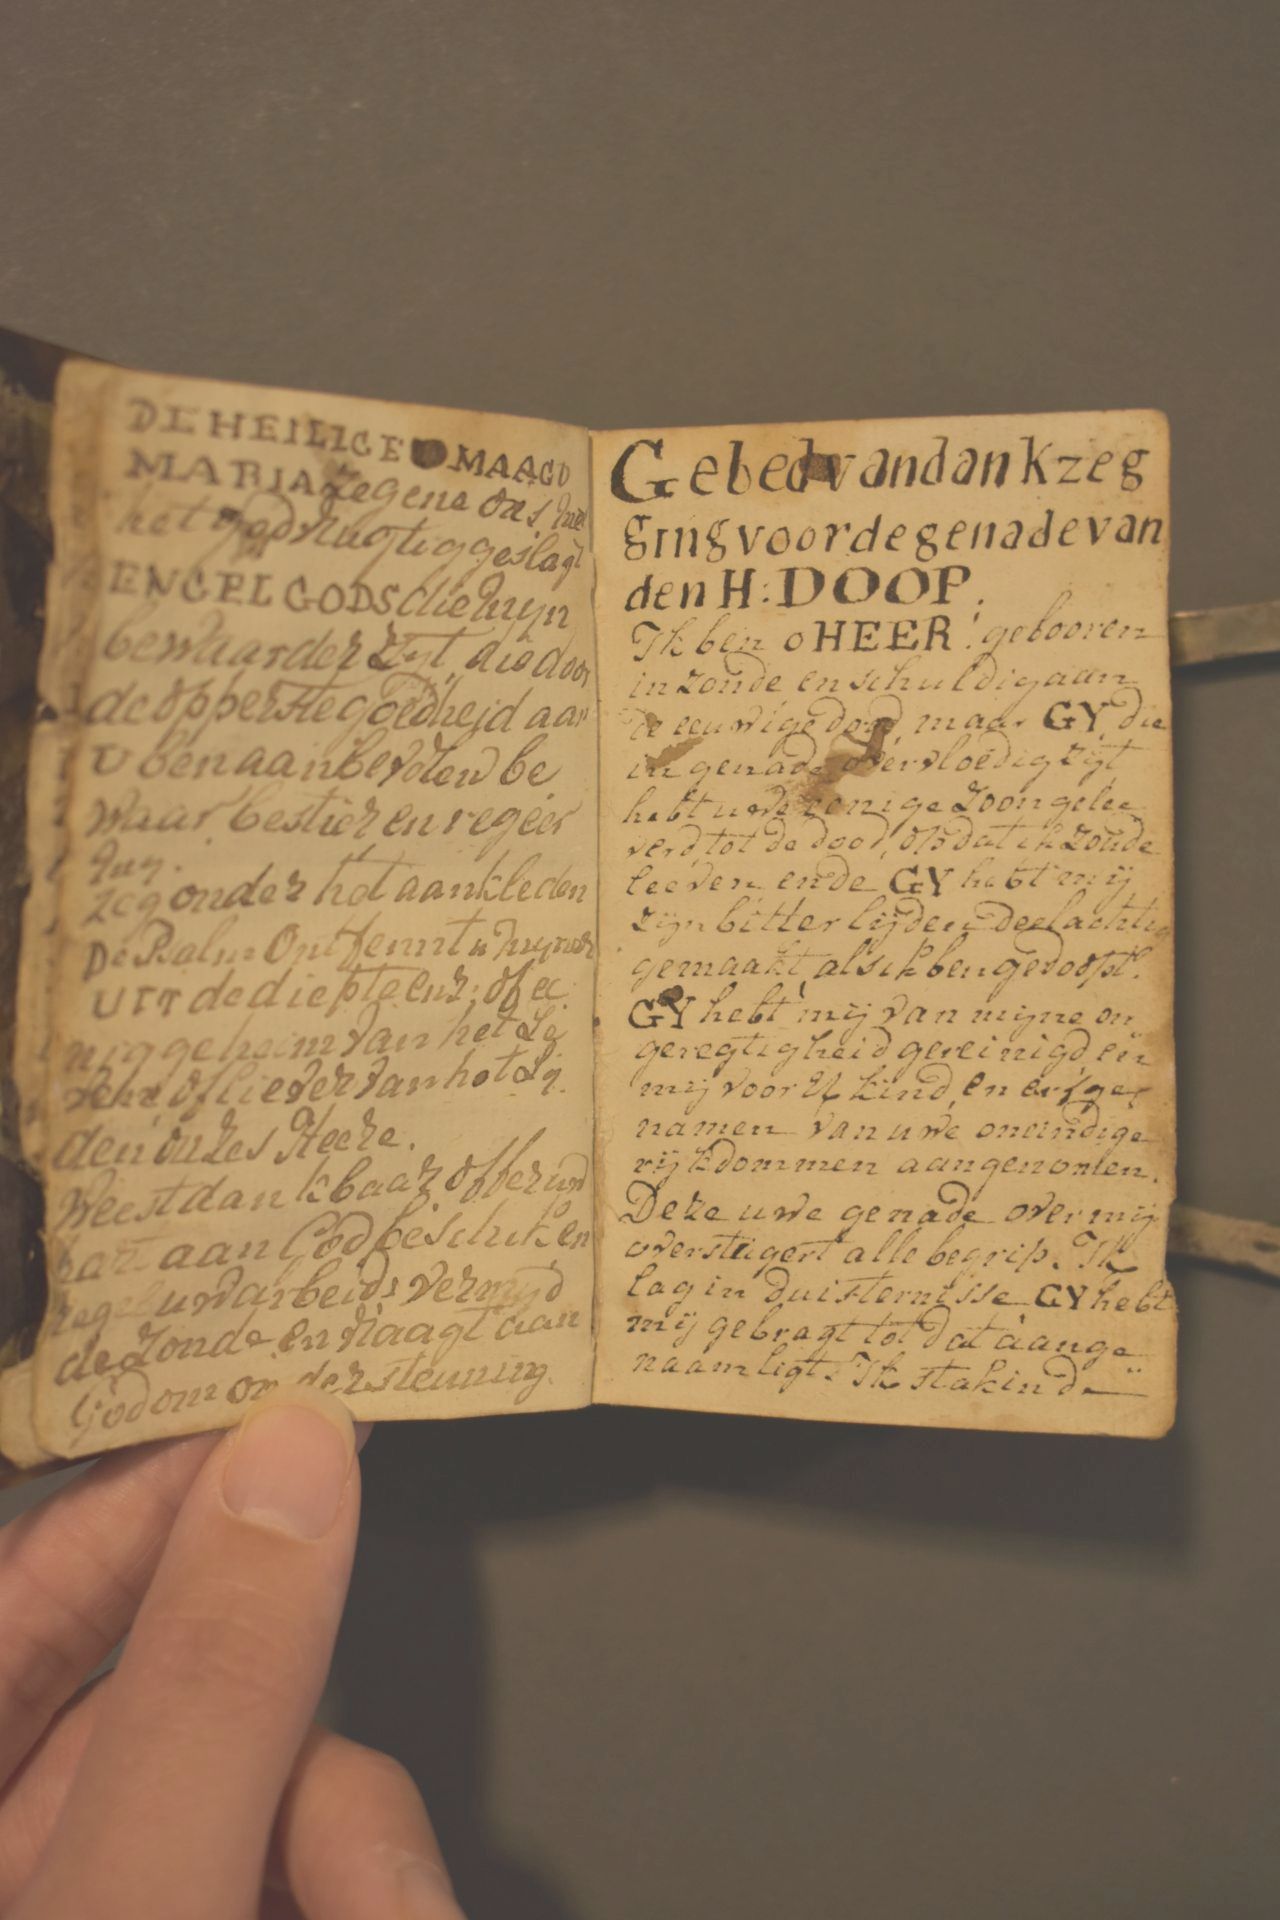 DE HEILIGE MAAGD
MARIA zegene ons met
het godvrugtig geslagt
ENGEL GODS die myn
bewaarder zyt, die door
de opperste goedheid aan
U ben aanbevolen be
waar bestier en regeer
my.
zeg onder het aankleden
De Psalm Ontfermt u myner
UIT de diepte enz: of ee
nig geheim van het Le
vene of liever van het Ly
den onzes Heere.
Weest dankbaar offer uw
hart aan God beschik en
regel uw arbeids vermyd
de zonde en vraagt aan
God om ondersteuning.
Gebed van dankzeg
ging voor de genade van
den H: DOOP.
Ik ben o HEER! gebooren
in zonde en schuldig aan
de eeuwige dood, maar GY, die
in genade overvloedig zijt
hebt uwe eenige zoon gelee
verd tot de dood, op dat ik zoude
leeven ende GY hebt mij
zijn bitter lijden deelachtig
gemaakt, als ik ben gedoopt.
GY hebt mij van mijne on
geregtigheid gereinigd en
mij voor Uw kind, en erfge
namen van uwe oneindige
rijkdommen aangenomen.
Deze uwe genade over mij
overstijgert alle begrip. Ik
lag in duisternisse GY hebt
mij gebragt tot dat aange
naam ligt. Ik stak in de